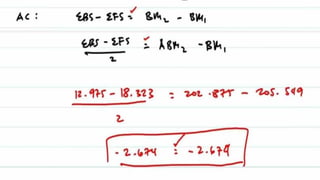 AC: ΣBS - ΣFS = BM₂ - BM₁
ΣBS - ΣFS / 2 = ABM₂ - BM₁
12.975 - 18.323 / 2 = 202.875 - 205.549
-2.674 = -2.674